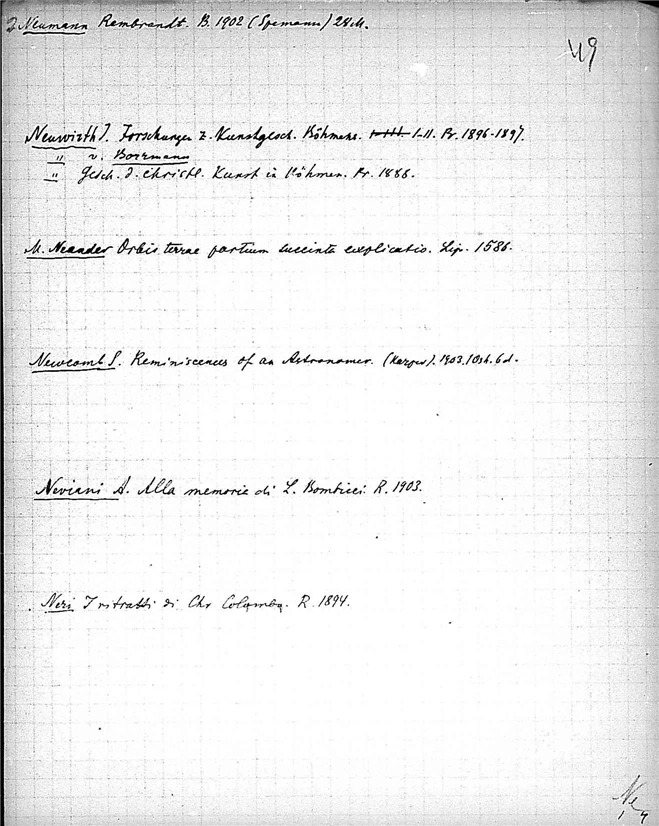 Neumann Rembrandt. B. 1902 (Spemann) 28 M.
49
Neuwirth J. Forschungen z. Kunstgesch. Böhmens. I-II. Pr. 1896-1897.
" v. Borrmann
" Gesch. d. christl. Kunst in Böhmen. Pr. 1888.
M. Neander Orbis terrae partium succinta explicatio. Lip. 1586.
Newcomb S. Reminiscences of an Astronomer. (Harper). 1903. 10sh. 6d.
Neviani A. Alla memoria di L. Bombicci R. 1903.
Neri I ritratti di Chr Colombo. R. 1894.
Ne